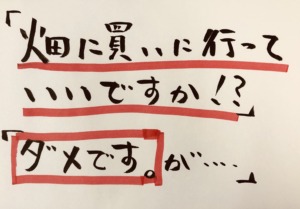 「畑に買いに行って
いいですか!?」
「ダメです。が・・・・」